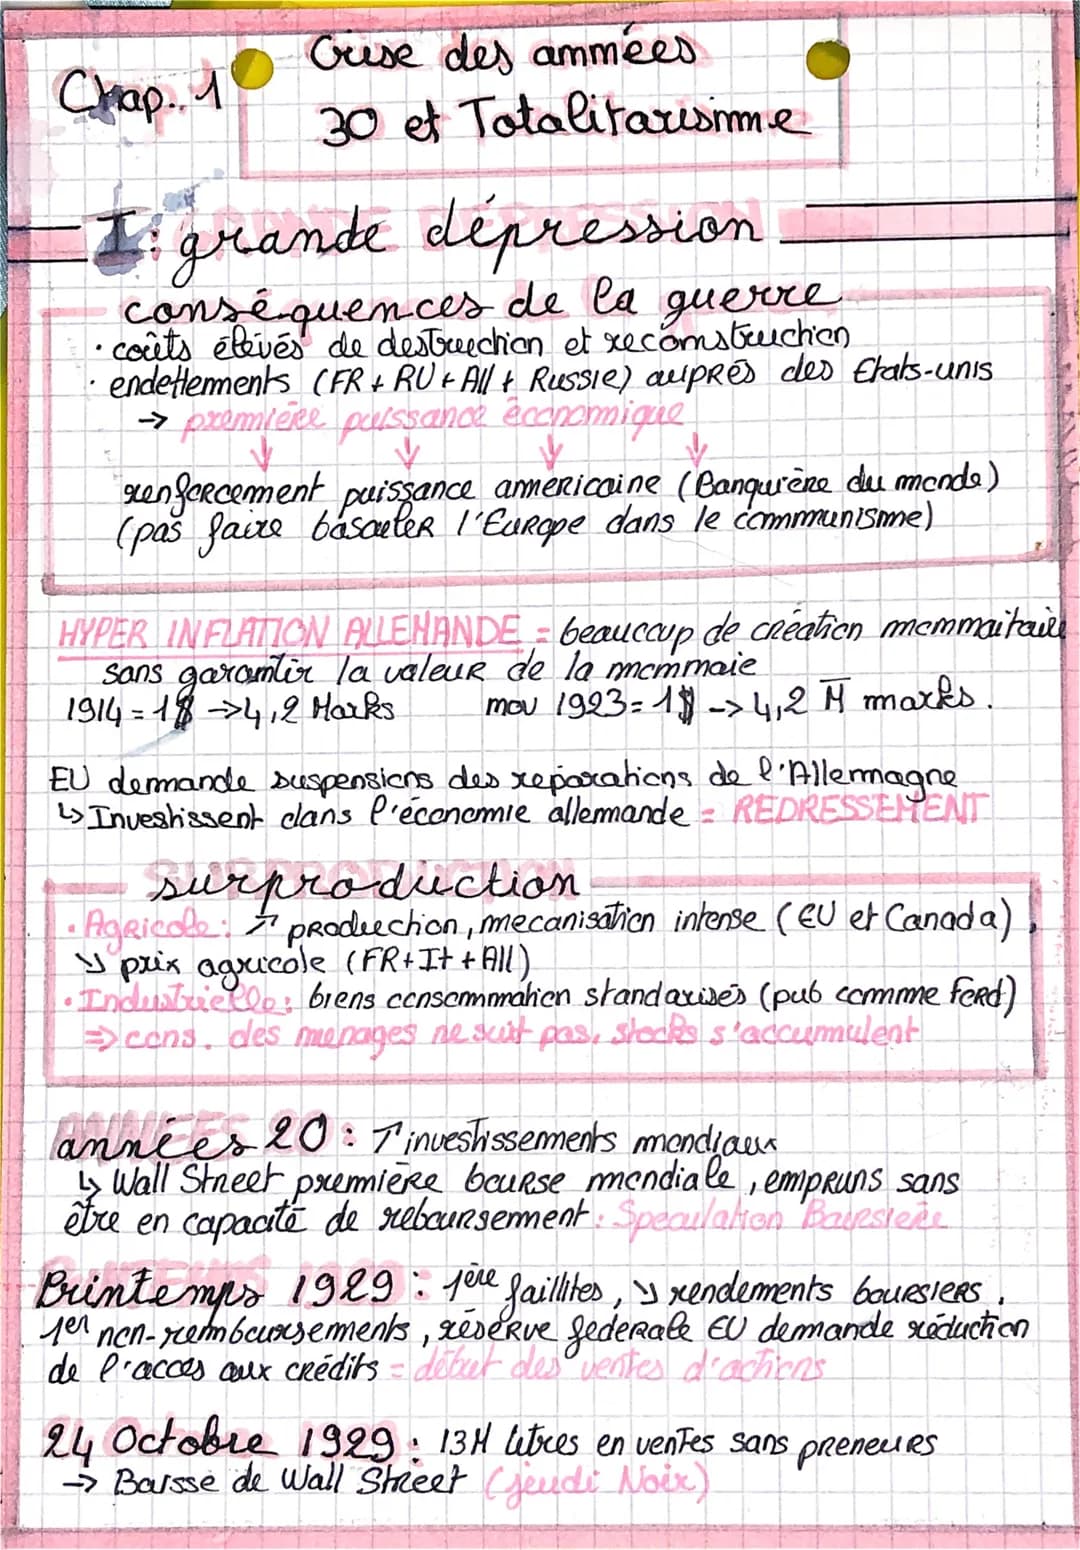 Chap. 1
Crise des années
30 et Totalitarisme
I: grande dépression
conséquences de la guerre
• coûts élevés de destruction et reconstruction
• endettements (FR + RU + All + Russie) auprès des Etats-unis
→ première puissance économique
↓ ↓ ↓ ↓
renforcement puissance américaine (Banquière du monde)
(pas faire basculer l'Europe dans le communisme)
HYPER INFLATION ALLEMANDE = beaucoup de création monnaitaire
sans garantir la valeur de la monnaie
1914 = 1$ → 4,2 Marks nov 1923 = 1$ → 4,2 M marks.
EU demande suspensions des reparations de l'Allemagne
↳ Investissent dans l'économie allemande = REDRESSEMENT
surproduction
• Agricole: ↗ production, mecanisation intense (EU et Canada),
↘ prix agricole (FR + It + All)
• Industrielle: biens consommation standarisés (pub comme Ford)
⇒ cons. des menages ne suit pas, stocks s'accumulent
années 20: ↑ investissements mondiaux
↳ Wall Street première bourse mondiale, empruns sans
être en capacité de reboursement: Speculation Boursière
Printemps 1929: 1ère faillites, ↘ rendements boursiers,
1er non-remboursements, réserve federale EU demande réduction
de l'acces aux crédits = début des ventes d'actions
24 Octobre 1929: 13M titres en ventes sans preneurs
→ Baisse de Wall Street (jeudi Noir)